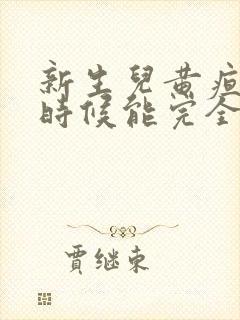 新生兒黄疸
時候能完全
賈继東